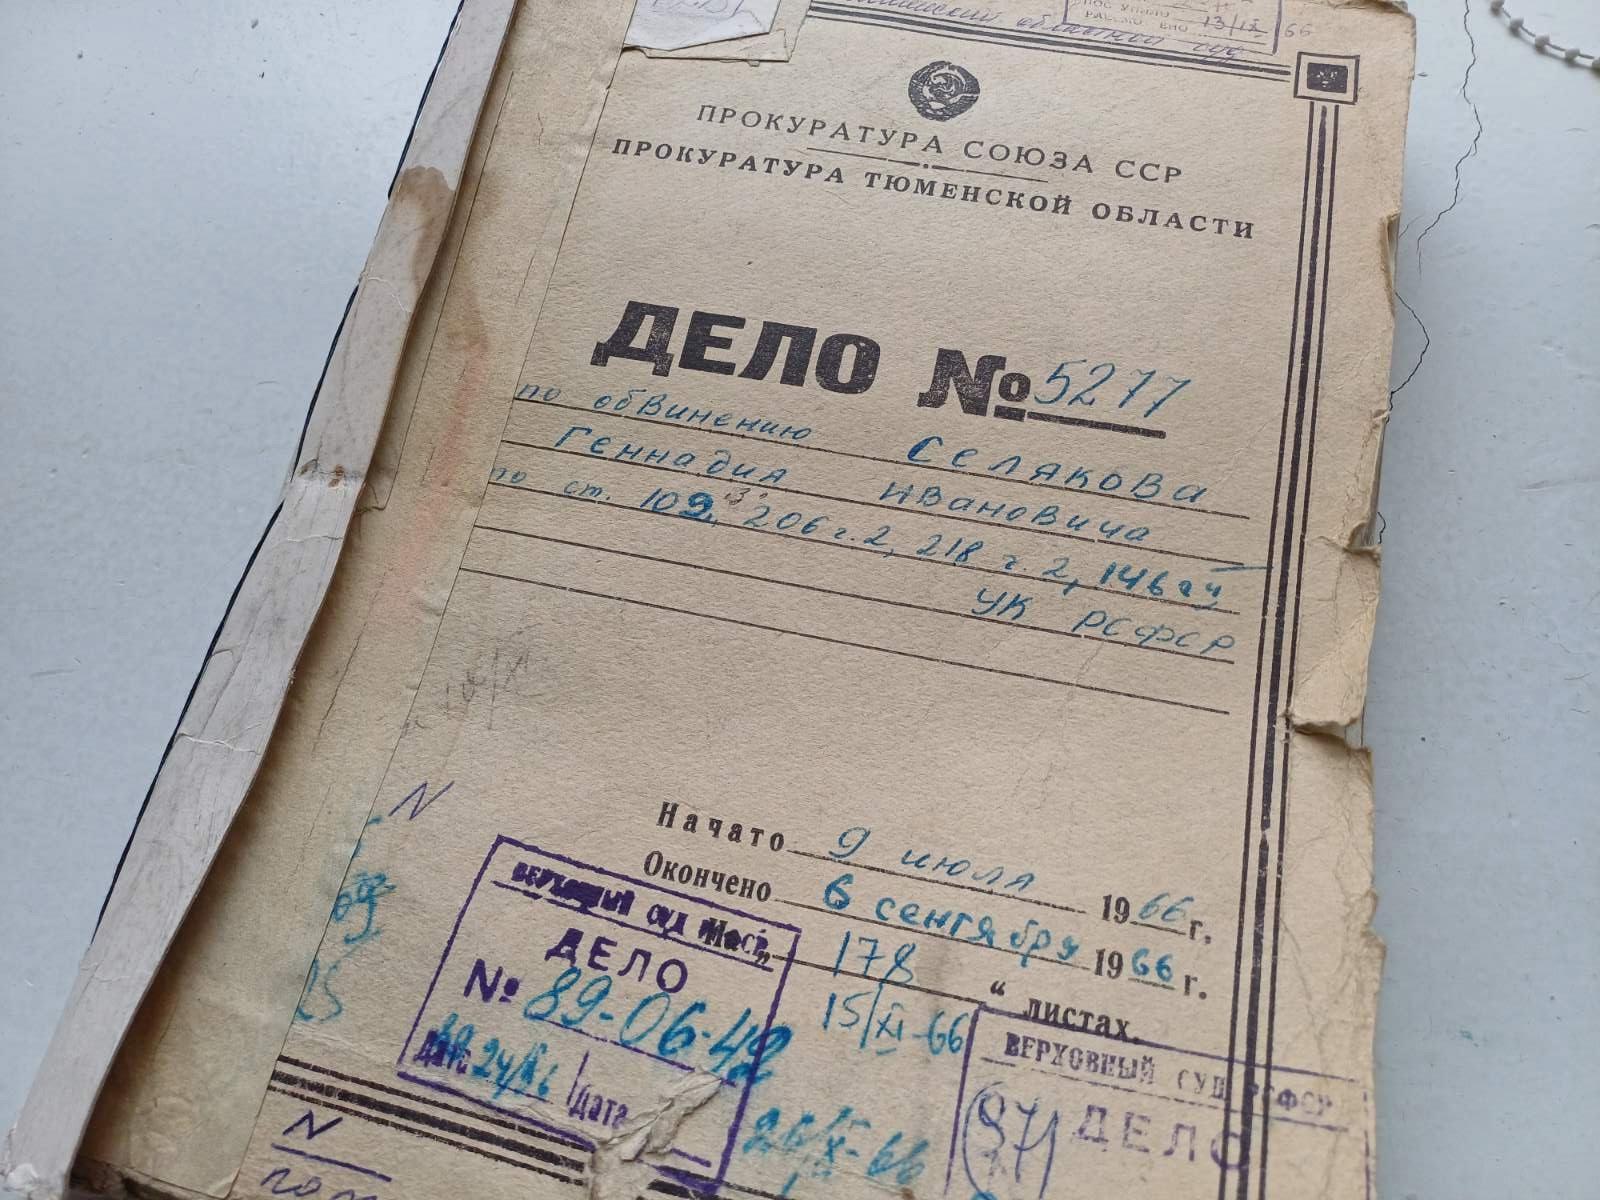 13/IX 66
областной суд
ПРОКУРАТУРА СОЮЗА ССР
ПРОКУРАТУРА ТЮМЕНСКОЙ ОБЛАСТИ
ДЕЛО № 5277
по обвинению Селякова
Геннадия Ивановича
по ст. 109, 206 ч. 2, 218 ч. 2, 146
УК РСФСР
N
Начато 9 июля 1966 г.
Окончено 6 сентября 1966 г.
178 “ листах.
ВЕРХОВНЫЙ СУД
ДЕЛО
№ 89-06-42
Дата
15/XI-66
ВЕРХОВНЫЙ СУД РСФСР
ДЕЛО
N